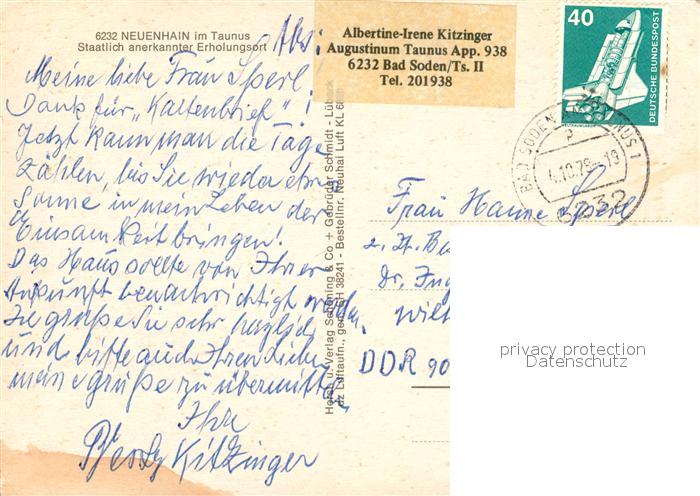 6232 NEUENHAIN im Taunus
Staatlich anerkannter Erholungsort
Abs:
Albertine-Irene Kitzinger
Augustinum Taunus App. 938
6232 Bad Soden/Ts. II
Tel. 201938
40
DEUTSCHE BUNDESPOST
BAD SODEN AM TAUNUS 1
4.10.78 19
6232
Meine liebe Frau Sperl
Dank für "Kartenbrief"!
Jetzt kann man die Tage
zählen, bis Sie wieder etwas
Sonne in mein Leben der
Einsamkeit bringen!
Das Haus sollte von Ihrer
Ankunft benachrichtigt werden.
Ich grüße Sie sehr herzlich
und bitte auch Ihren Lieben
meine Grüße zu übermitteln
Ihre
Kitzinger
Hofen u. Verlag Schöning & Co + Gebrüder Schmidt - Lübeck
Luftaufn., gen. SH 38241 - Bestellnr. Neuhai Luft KL
Frau Hanne Sperl
z. Zt.
Dr.
DDR 90
privacy protection
Datenschutz